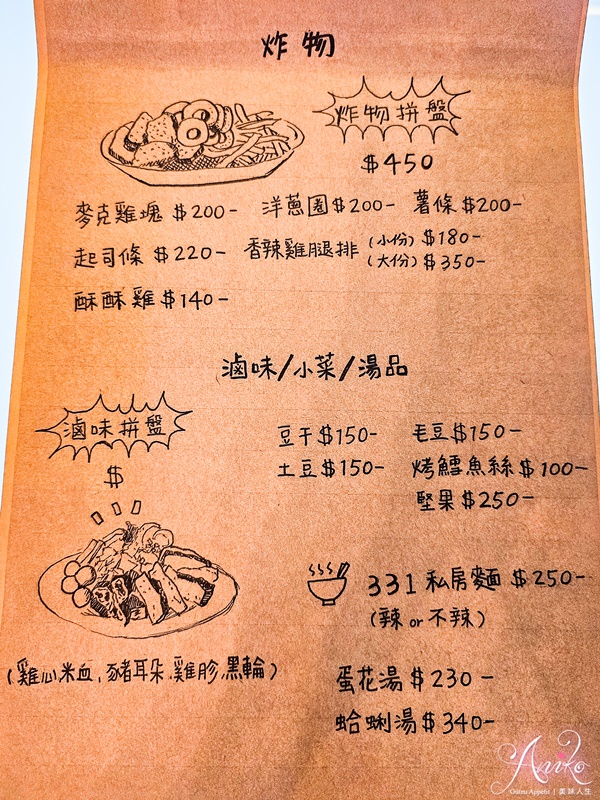 炸物
炸物拼盤
$450
麥克雞塊 $200- 洋蔥圈$200- 薯條$200-
起司條 $220- 香辣雞腿排 (小份) $180-
(大份) $350-
酥酥雞 $140-
滷味/小菜/湯品
滷味拼盤
$
豆干$150- 毛豆$150-
土豆$150- 烤鱈魚絲$100-
堅果$250-
331 私房麵 $250-
(辣 or 不辣)
(雞心.米血.豬耳朵.雞胗.黑輪)
蛋花湯 $230-
蛤蜊湯$340-
Anko
Guten Appetit | 美味人生